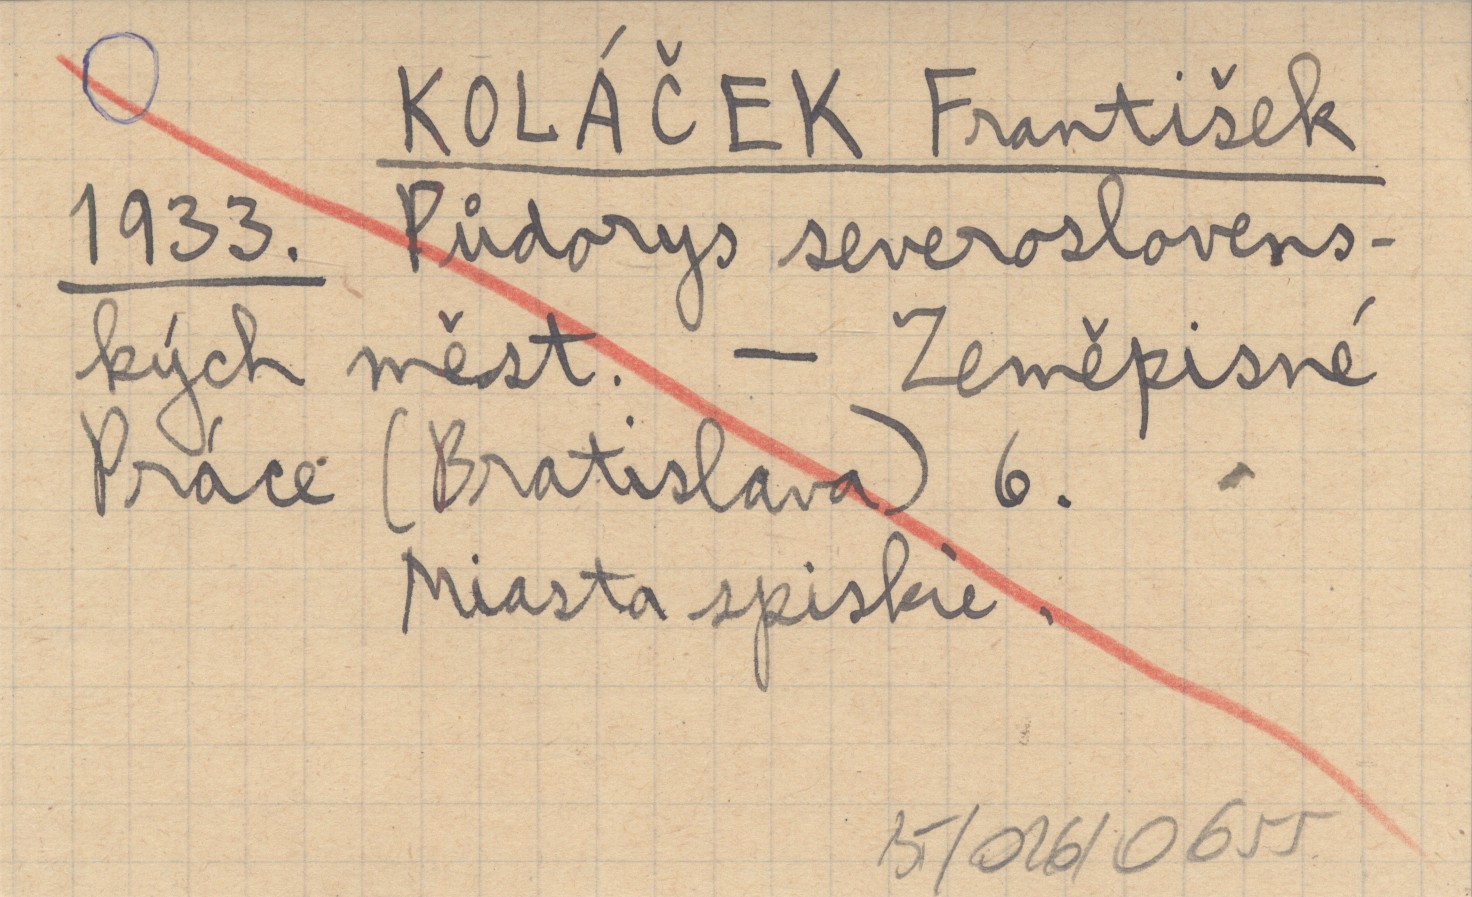 KOLÁČEK František
1933. Půdorys severoslovens-
kých měst. — Zeměpisné
Práce (Bratislava) 6.
Miasta spiskie.
15/026/0655